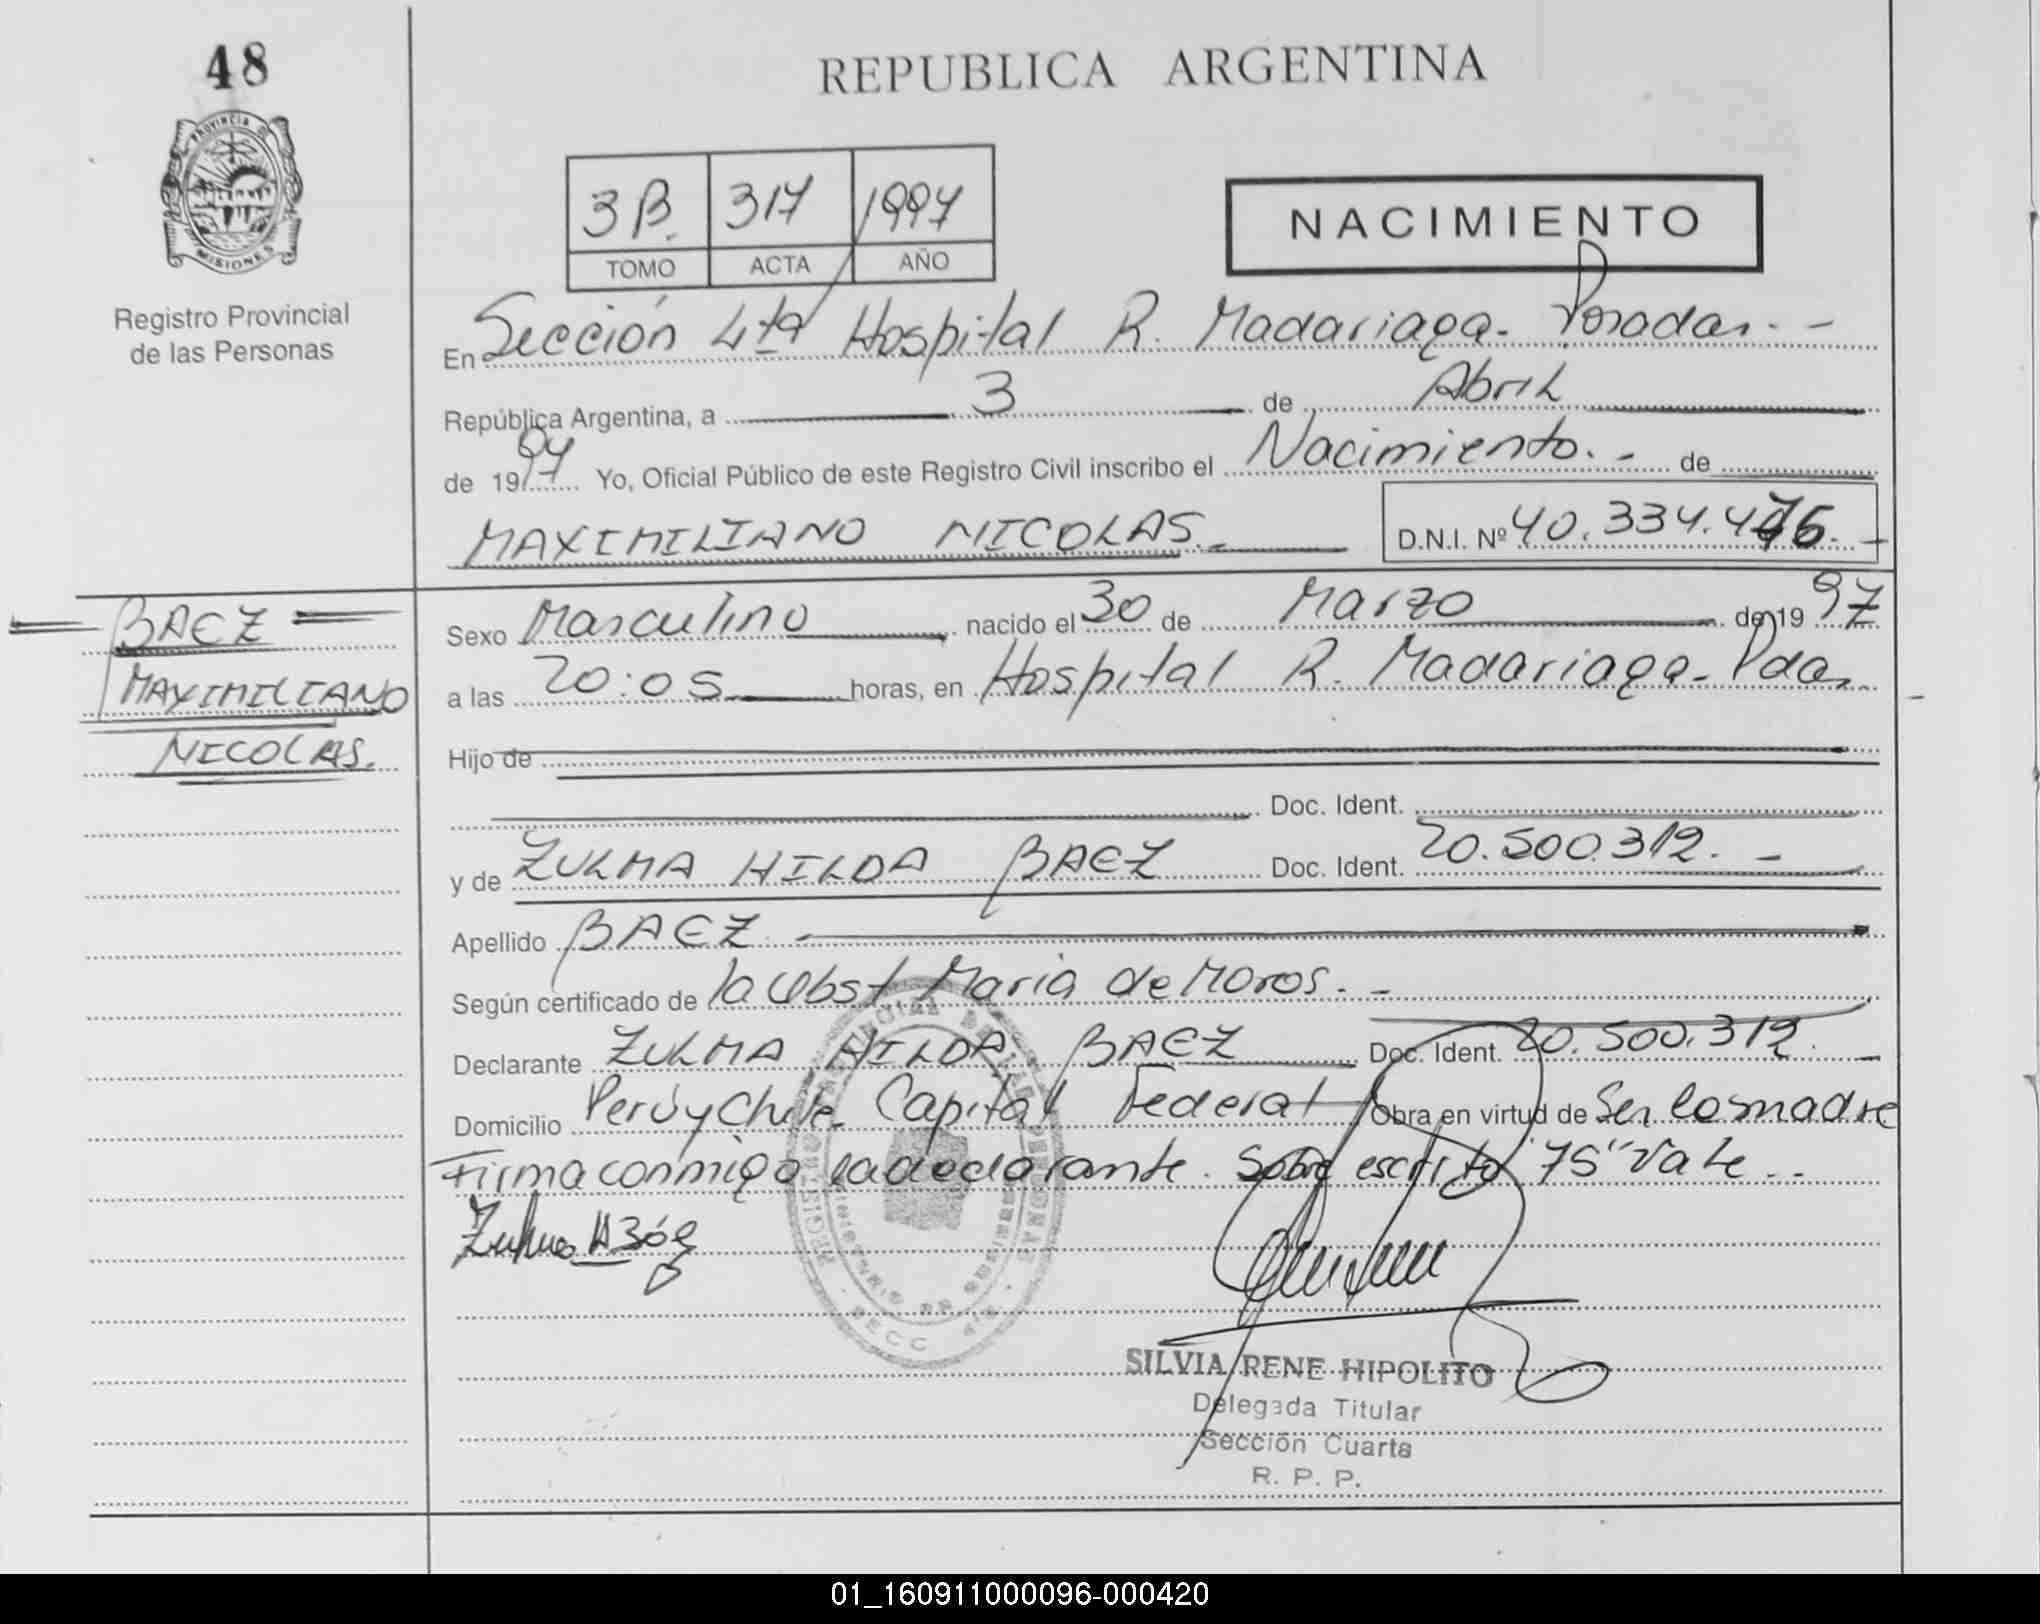 48
REPUBLICA ARGENTINA
PROVINCIA DE
MISIONES
Registro Provincial
de las Personas
3B. 317 1997
TOMO ACTA AÑO
NACIMIENTO
En Sección 4ta Hospital R. Madariaga. Posadas. -
República Argentina, a 3 de Abril
de 1997 Yo, Oficial Público de este Registro Civil inscribo el Nacimiento. - de
MAXIMILIANO NICOLAS. D.N.I. Nº 40.334.475. -
BAEZ
MAXIMILIANO
NICOLAS.
Sexo Masculino nacido el 30 de Marzo de 1997
a las 20:05 horas, en Hospital R. Madariaga - Pdas
Hijo de
Doc. Ident.
y de ZULMA HILDA BAEZ Doc. Ident. 20.500.312. -
Apellido BAEZ. -
Según certificado de la Obst María de Moros. -
Declarante ZULMA HILDA BAEZ Doc. Ident. 20.500.312. -
Domicilio Perú y Chile Capital Federal Obra en virtud de Ser la madre
Firma conmigo la declarante. Sobre escrito "75" Vale. -
Zulma H Báez
SILVIA RENE HIPOLITO
Delegada Titular
Sección Cuarta
R. P. P.
01_160911000096-000420